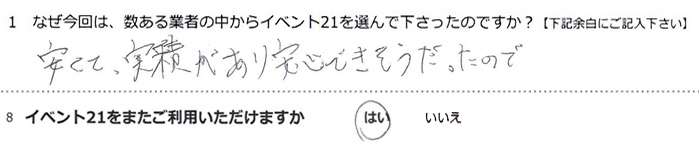 1 なぜ今回は、数ある業者の中からイベント21を選んで下さったのですか？【下記余白にご記入下さい】
安くて、実積があり安心できそうだったので
8 イベント21をまたご利用いただけますか はい いいえ